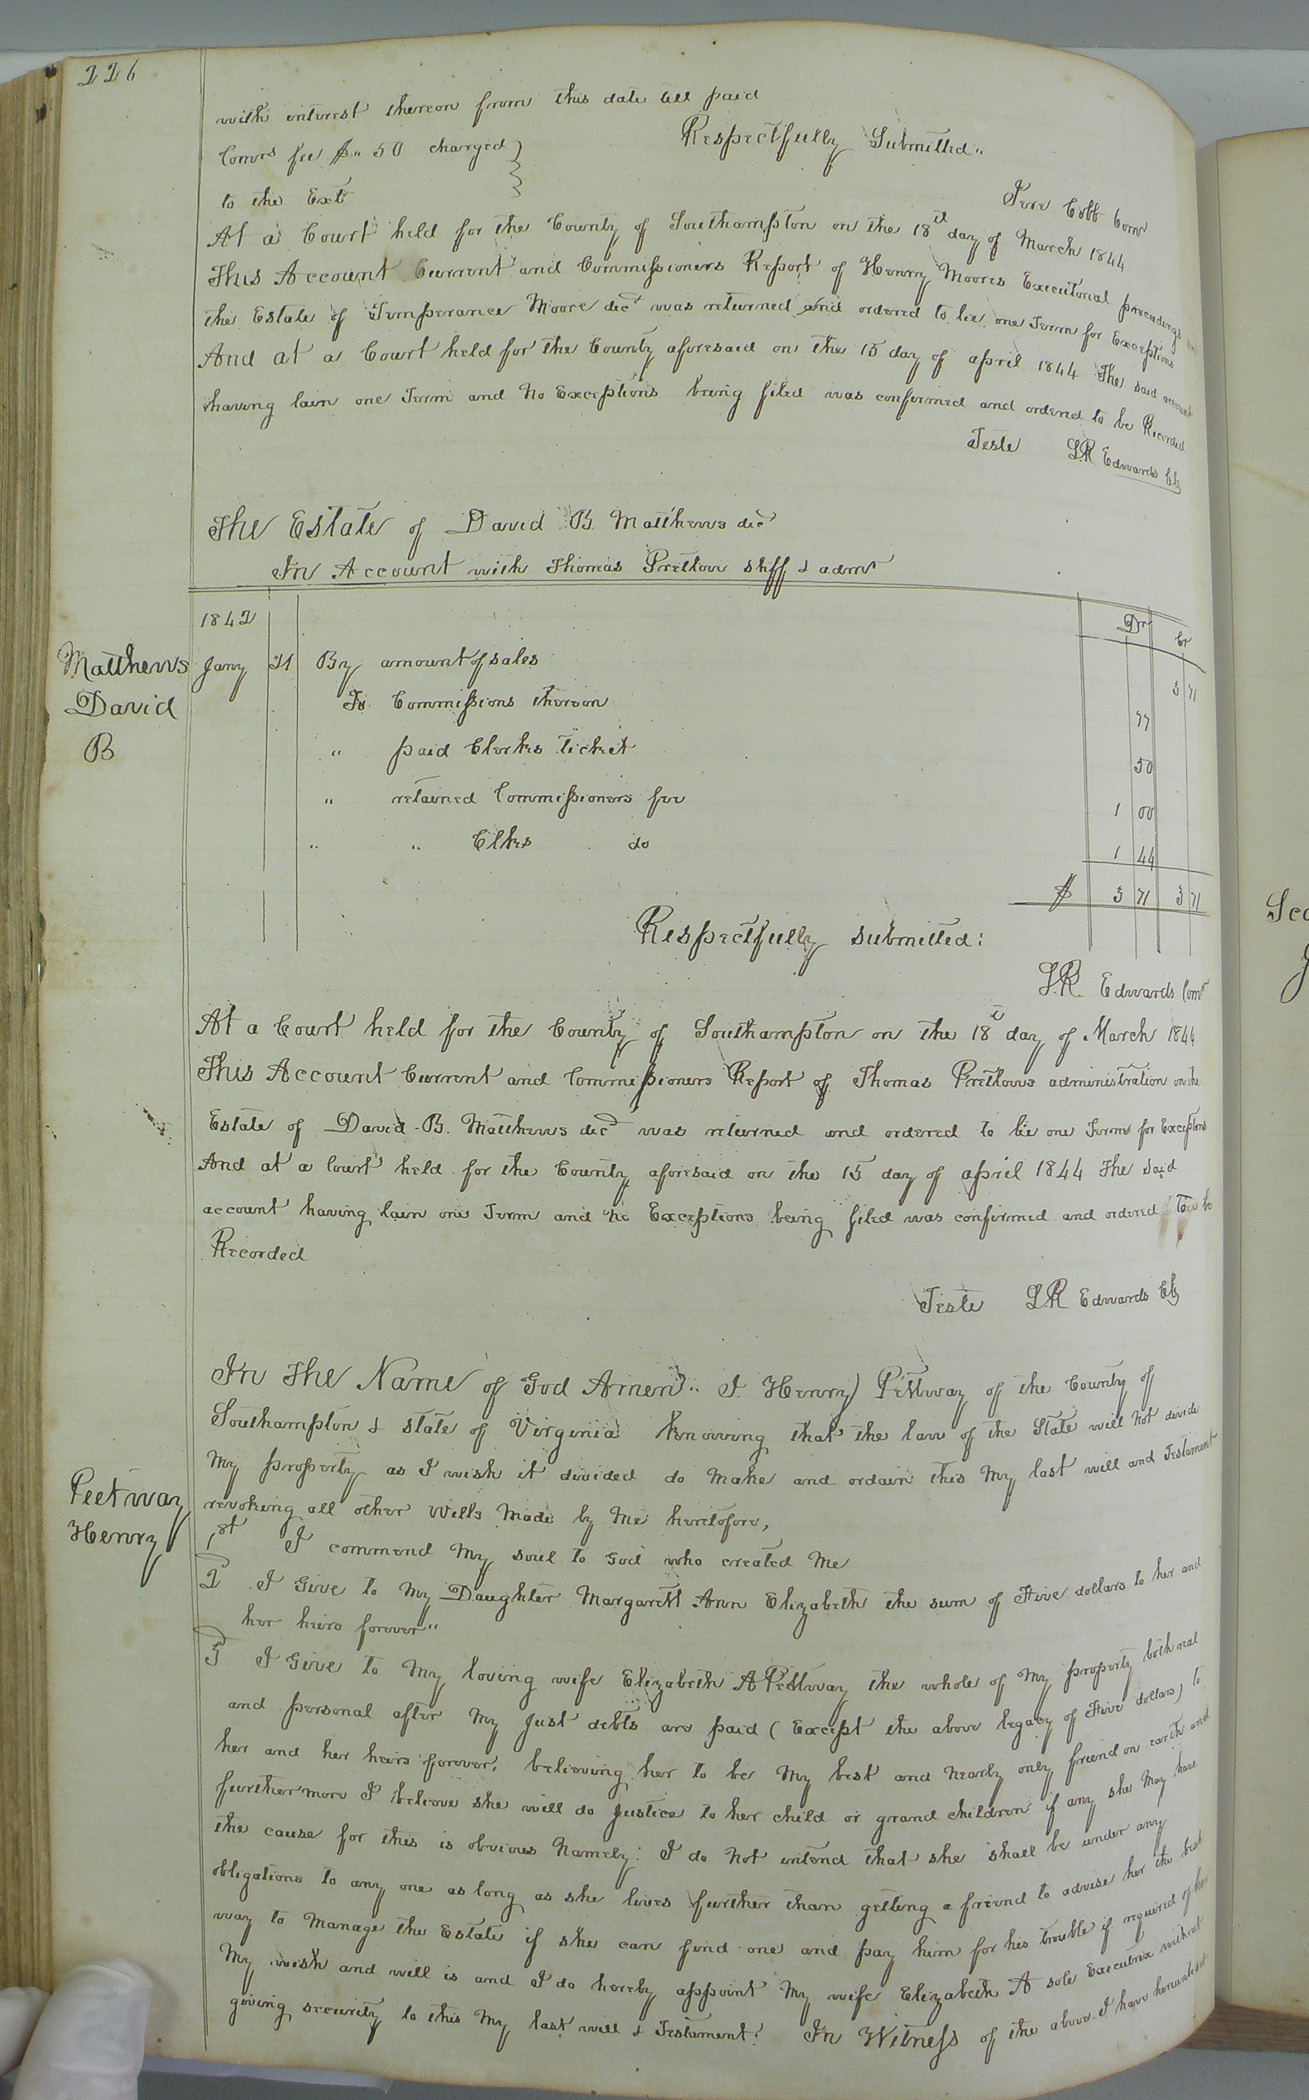 226
with interest thereon from this date till paid
Comrs fee $ " 50 charged
to the Ext
Respectfully Submitted "
Jere Cobb Comr
At a Court held for the County of Southampton on the 18th day of March 1844
This Account Current and Commissioners Report of Henry Moores Executorial proceedings
the Estate of Temperance Moore decd was returned and ordered to lie one Term for Exceptions
And at a Court held for the County aforesaid on the 15 day of april 1844 The said account
having lain one Term and No Exceptions being filed was confirmed and ordered to be Recorded
Teste L.R. Edwards Clk
The Estate of David B Matthews decd
In Account with Thomas Pretlow Shff & admr
1842 Dr Cr
Matthews David B
Jany 21 By amount of sales 3 71
To Commissions thereon 77
" paid Clerkes Ticket 50
" retained Commissioners fee 1 00
" " Clkes do 1 44
$ 3 71 3 71
Respectfully submitted:
L.R. Edwards Comr
At a Court held for the County of Southampton on the 18th day of March 1844
This Account Current and Commissioners Report of Thomas Pretlows administration on the
Estate of David B. Matthews decd was returned and ordered to lie one Term for Exceptions
And at a Court held for the County aforesaid on the 15 day of april 1844 The said
account having lain one Term and no Exceptions being filed was confirmed and ordered to be
Recorded
Teste L.R. Edwards Clk
Peetway Henry
In The Name of God Amen " I Henry Pettway of the County of
Southampton & State of Virginia Knowing that the law of the State will Not divide
My property as I wish it divided do Make and ordain this My last will and Testament
revoking all other Wills Made by Me heretofore,
1st I commend My soul to God who created Me
2 I Give to My Daughter Margarett Ann Elizabeth the sum of Five dollars to her and
her heirs forever "
3 I Give to My loving wife Elizabeth A Pettway the whole of My property both real
and personal after My Just debts are paid (Except the above legacy of Five dollars) to
her and her heirs forever, believing her to be My best and Nearly only friend on earth and
further more I believe she will do Justice to her child or grand children if any she May have
the cause for this is obvious Namely: I do Not intend that she shall be under any
obligations to any one as long as she lives further than getting a freind to advise her the best
way to Manage the Estate if she can find one and pay him for his trouble if required of her
My wish and will is and I do hereby appoint My wife Elizabeth A sole Executrix without
giving security to this My last will & Testament. In Witness of the above I have hereunto set